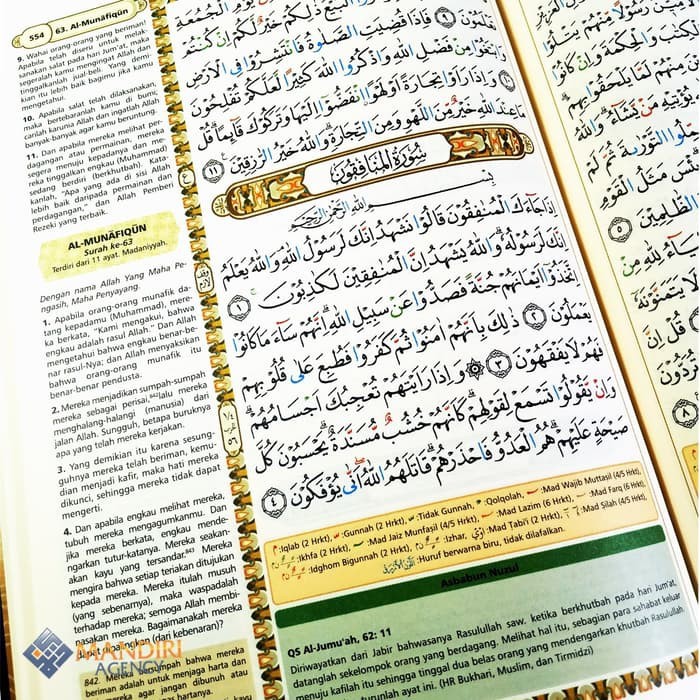 554
63. Al-Munāfiqūn
9. Wahai orang-orang yang beriman!
Apabila telah diseru untuk melak-
sanakan salat pada hari Jum'at, maka
segeralah kamu mengingat Allah dan
tinggalkanlah jual-beli. Yang demi-
kian itu lebih baik bagimu jika kamu
mengetahui.
10. Apabila salat telah dilaksanakan,
maka bertebaranlah kamu di bumi;
carilah karunia Allah dan ingatlah Allah
banyak-banyak agar kamu beruntung.
11. Dan apabila mereka melihat per-
dagangan atau permainan, mereka
segera menuju kepadanya dan me-
reka tinggalkan engkau (Muhammad)
sedang berdiri (berkhutbah). Kata-
kanlah, "Apa yang ada di sisi Allah
lebih baik daripada permainan dan
perdagangan," dan Allah Pemberi
Rezeki yang terbaik.
AL-MUNĀFIQŪN
Surah ke-63
Terdiri dari 11 ayat. Madaniyyah.
Dengan nama Allah Yang Maha Pe-
ngasih, Maha Penyayang.
1. Apabila orang-orang munafik da-
tang kepadamu (Muhammad), mere-
ka berkata, "Kami mengakui, bahwa
engkau adalah rasul Allah." Dan Allah
mengetahui bahwa engkau benar-be-
nar rasul-Nya; dan Allah menyaksikan
bahwa orang-orang munafik itu
benar-benar pendusta.
2. Mereka menjadikan sumpah-sumpah
mereka sebagai perisai,842 lalu mereka
menghalang-halangi (manusia) dari
jalan Allah. Sungguh, betapa buruknya
apa yang telah mereka kerjakan.
3. Yang demikian itu karena sesung-
guhnya mereka telah beriman, kemu-
dian menjadi kafir, maka hati mereka
dikunci, sehingga mereka tidak dapat
mengerti.
4. Dan apabila engkau melihat mereka,
tubuh mereka mengagumkanmu. Dan
jika mereka berkata, engkau mende-
ngarkan tutur-katanya. Mereka seakan-
akan kayu yang tersandar.843 Mereka
mengira bahwa setiap teriakan ditujukan
kepada mereka. Mereka itulah musuh
(yang sebenarnya), maka waspadalah
terhadap mereka; semoga Allah membi-
nasakan mereka. Bagaimanakah mereka
dapat dipalingkan (dari kebenaran)?
842. Mereka bersumpah bahwa mereka
beriman adalah untuk menjaga harta dan
mereka agar jangan dibunuh atau
hartanya.
تَعْلَمُونَ ۝٩ فَإِذَا قُضِيَتِ الصَّلٰوةُ فَانْتَشِرُوا فِى الْاَرْضِ
وَابْتَغُوا مِنْ فَضْلِ اللّٰهِ وَاذْكُرُوا اللّٰهَ كَثِيْرًا لَّعَلَّكُمْ تُفْلِحُوْنَ
۝١٠ وَاِذَا رَاَوْا تِجَارَةً اَوْ لَهْوًا انْفَضُّوْٓا اِلَيْهَا وَتَرَكُوْكَ قَاۤىِٕمًاۗ قُلْ
مَا عِنْدَ اللّٰهِ خَيْرٌ مِّنَ اللَّهْوِ وَمِنَ التِّجَارَةِۗ وَاللّٰهُ خَيْرُ الرّٰزِقِيْنَ ۝١١
سُوْرَةُ الْمُنَافِقُوْنَ
بِسْمِ اللّٰهِ الرَّحْمٰنِ الرَّحِيْمِ
اِذَا جَاۤءَكَ الْمُنٰفِقُوْنَ قَالُوْا نَشْهَدُ اِنَّكَ لَرَسُوْلُ اللّٰهِ ۘوَاللّٰهُ يَعْلَمُ
اِنَّكَ لَرَسُوْلُهٗ ۗوَاللّٰهُ يَشْهَدُ اِنَّ الْمُنٰفِقِيْنَ لَكٰذِبُوْنَ ۝١
اِتَّخَذُوْٓا اَيْمَانَهُمْ جُنَّةً فَصَدُّوْا عَنْ سَبِيْلِ اللّٰهِ ۗاِنَّهُمْ سَاۤءَ مَا كَانُوْا
يَعْمَلُوْنَ ۝٢ ذٰلِكَ بِاَنَّهُمْ اٰمَنُوْا ثُمَّ كَفَرُوْا فَطُبِعَ عَلٰى قُلُوْبِهِمْ
فَهُمْ لَا يَفْقَهُوْنَ ۝٣ ۞ وَاِذَا رَاَيْتَهُمْ تُعْجِبُكَ اَجْسَامُهُمْۗ
وَاِنْ يَّقُوْلُوْا تَسْمَعْ لِقَوْلِهِمْۗ كَاَنَّهُمْ خُشُبٌ مُّسَنَّدَةٌ ۗيَحْسَبُوْنَ كُلَّ
صَيْحَةٍ عَلَيْهِمْۗ هُمُ الْعَدُوُّ فَاحْذَرْهُمْۗ قَاتَلَهُمُ اللّٰهُ ۖاَنّٰى يُؤْفَكُوْنَ ۝٤
:Iqlab (2 Hrkt), :Gunnah (2 Hrkt), :Tidak Gunnah, :Qolqolah, :Mad Wajib Muttasil (4/5 Hrkt),
:Ikhfa (2 Hrkt), :Mad Jaiz Munfasil (4/5 Hrkt), :Mad Lazim (6 Hrkt), :Mad Farq (6 Hrkt),
:Idghom Bigunnah (2 Hrkt), :Izhar, :Mad Tabi'i (2 Hrkt), :Mad Silah (4/5 Hrkt)
:Huruf berwarna biru, tidak dilafalkan.
Asbabun Nuzul
QS Al-Jumu'ah, 62: 11
Diriwayatkan dari Jabir bahwasanya Rasulullah saw. ketika berkhutbah pada hari Jum'at,
datanglah sekelompok orang yang berdagang. Melihat hal itu, sebagian para sahabat keluar
menuju kafilah itu sehingga tinggal dua belas orang yang mendengarkan khutbah Rasulullah.
turunlah ayat ini. (HR Bukhari, Muslim, dan Tirmidzi)
MANDIRI
AGENCY